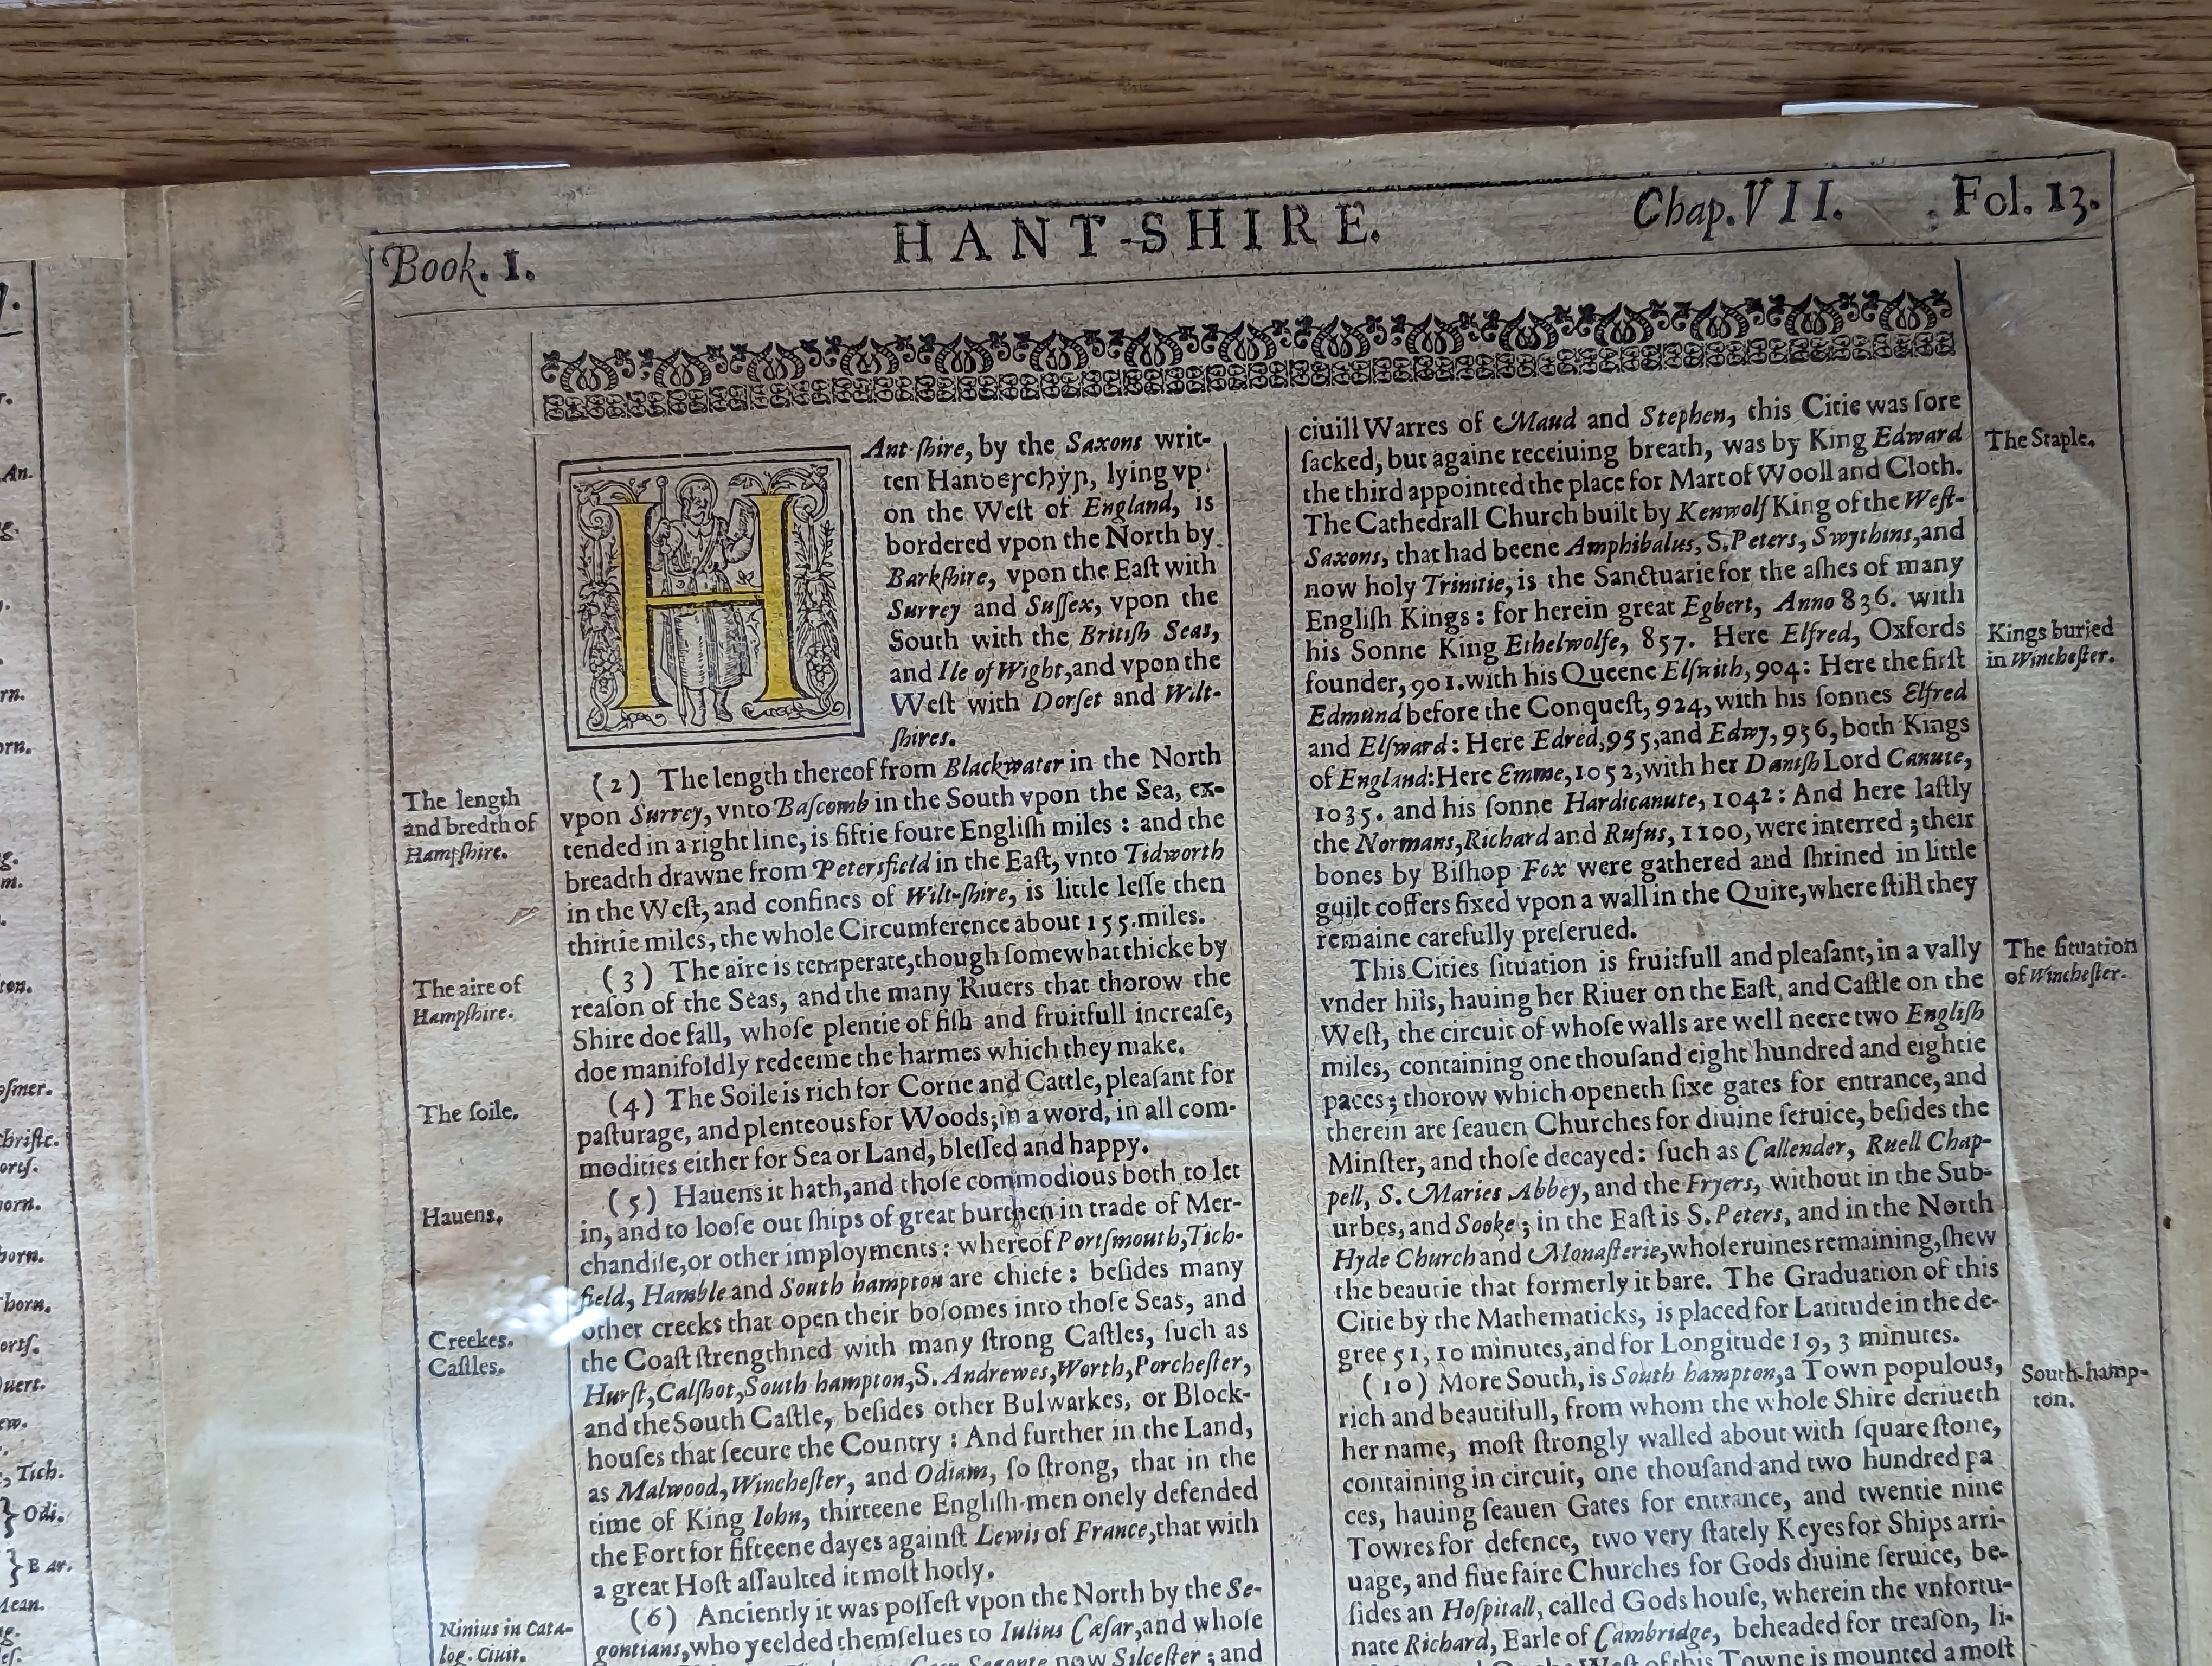 Book. I.
HANT-SHIRE.
Chap. VII.
Fol. 13.
HAnt-ſhire, by the Saxons writ-
ten Hanꝺeꞃchẏꞃ, lying vp
on the Weſt of England, is
bordered vpon the North by
Barkſhire, vpon the Eaſt with
Surrey and Suſſex, vpon the
South with the Britiſh Seas,
and Ile of Wight, and vpon the
Weſt with Dorſet and Wilt-
ſhires.
The length
and bredth of
Hampſhire.
(2) The length thereof from Blackwater in the North
vpon Surrey, vnto Baſcomb in the South vpon the Sea, ex-
tended in a right line, is fiftie foure Engliſh miles : and the
breadth drawne from Petersfield in the Eaſt, vnto Tidworth
in the Weſt, and confines of Wilt-ſhire, is little leſſe then
thirtie miles, the whole Circumference about 155. miles.
The aire of
Hampſhire.
(3) The aire is temperate, though ſomewhat thicke by
reaſon of the Seas, and the many Riuers that thorow the
Shire doe fall, whoſe plentie of fiſh and fruitfull increaſe,
doe manifoldly redeeme the harmes which they make.
The ſoile.
(4) The Soile is rich for Corne and Cattle, pleaſant for
paſturage, and plenteous for Woods; in a word, in all com-
modities either for Sea or Land, bleſſed and happy.
Hauens,
(5) Hauens it hath, and thoſe commodious both to let
in, and to looſe out ſhips of great burthen in trade of Mer-
chandiſe, or other imployments : whereof Portſmouth, Tich-
field, Hamble and South hampton are chiefe : beſides many
other creeks that open their boſomes into thoſe Seas, and
Creekes.
Caſtles.
the Coaſt ſtrengthned with many ſtrong Caſtles, ſuch as
Hurſt, Calſhot, South hampton, S. Andrewes, Worth, Porcheſter,
and the South Caſtle, beſides other Bulwarkes, or Block-
houſes that ſecure the Country : And further in the Land,
as Malwood, Wincheſter, and Odiam, ſo ſtrong, that in the
time of King Iohn, thirteene Engliſh-men onely defended
the Fort for fifteene dayes againſt Lewis of France, that with
a great Hoſt aſſaulted it moſt hotly.
Ninius in Cata-
log. Ciuit.
(6) Anciently it was poſſeſt vpon the North by the Se-
gontians, who yeelded themſelues to Iulius Cæſar, and whoſe
Segonte now Silceſter ; and
ciuill Warres of Maud and Stephen, this Citie was ſore
ſacked, but againe receiuing breath, was by King Edward
The Staple.
the third appointed the place for Mart of Wooll and Cloth.
The Cathedrall Church built by Kenwolf King of the Weſt-
Saxons, that had beene Amphibalus, S. Peters, Swythins, and
now holy Trinitie, is the Sanctuarie for the aſhes of many
Engliſh Kings : for herein great Egbert, Anno 836. with
his Sonne King Ethelwolfe, 857. Here Elfred, Oxfords
Kings buried
in Wincheſter.
founder, 901. with his Queene Elſwith, 904: Here the firſt
Edmund before the Conqueſt, 924, with his ſonnes Elfred
and Elſward : Here Edred, 955, and Edwy, 956, both Kings
of England: Here Emme, 1052, with her Daniſh Lord Canute,
1035. and his ſonne Hardicanute, 1042 : And here laſtly
the Normans, Richard and Rufus, 1100, were interred ; their
bones by Biſhop Fox were gathered and ſhrined in little
guilt coffers fixed vpon a wall in the Quire, where ſtill they
remaine carefully preſerued.
The ſituation
of Wincheſter.
This Cities ſituation is fruitfull and pleaſant, in a vally
vnder hils, hauing her Riuer on the Eaſt, and Caſtle on the
Weſt, the circuit of whoſe walls are well neere two Engliſh
miles, containing one thouſand eight hundred and eightie
paces; thorow which openeth ſixe gates for entrance, and
therein are ſeauen Churches for diuine ſeruice, beſides the
Minſter, and thoſe decayed : ſuch as Callender, Ruell Chap-
pell, S. Maries Abbey, and the Fryers, without in the Sub-
urbes, and Sooke ; in the Eaſt is S. Peters, and in the North
Hyde Church and Monaſterie, whoſe ruines remaining, ſhew
the beautie that formerly it bare. The Graduation of this
Citie by the Mathematicks, is placed for Latitude in the de-
gree 51, 10 minutes, and for Longitude 19, 3 minutes.
South-hamp-
ton.
(10) More South, is South hampton, a Town populous,
rich and beautifull, from whom the whole Shire deriueth
her name, moſt ſtrongly walled about with ſquare ſtone,
containing in circuit, one thouſand and two hundred pa
ces, hauing ſeauen Gates for entrance, and twentie nine
Towres for defence, two very ſtately Keyes for Ships arri-
uage, and fiue faire Churches for Gods diuine ſeruice, be-
ſides an Hoſpitall, called Gods houſe, wherein the vnfortu-
nate Richard, Earle of Cambridge, beheaded for treaſon, li-
of this Towne is mounted a moſt